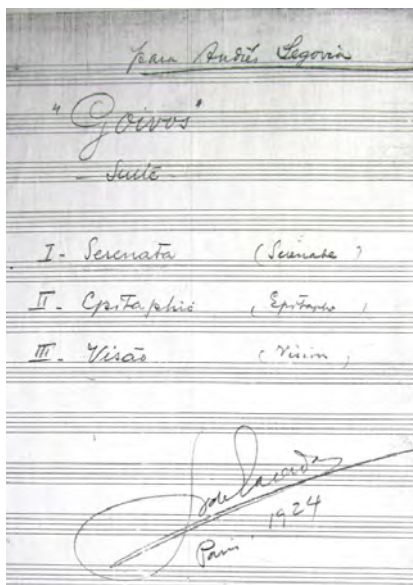 para Andrés Segovia
"Goivos"
- Suite -
I - Serenata (Serenade)
II - Epitaphio (Epitaphe)
III - Visão (Vision)
de Lacerda
Paris 1924